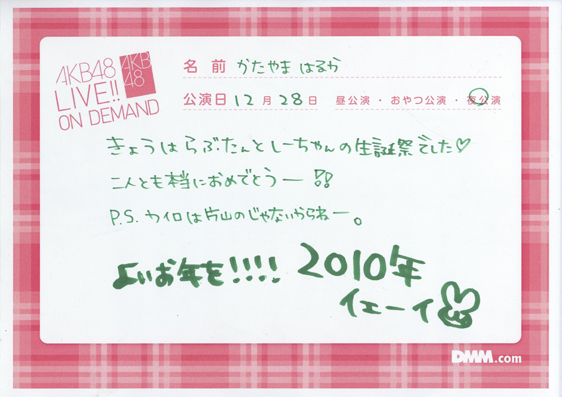 AKB48
LIVE!!
ON DEMAND
AKB
48
名前 かたやま はるか
公演日 12月28日 昼公演・おやつ公演・夜公演
きょうはらぶたんとしーちゃんの生誕祭でした♡
二人とも本当におめでとうー!!
P.S. カイロは片山のじゃないからねー。
よいお年を!!!! 2010年
イェーイ
DMM.com